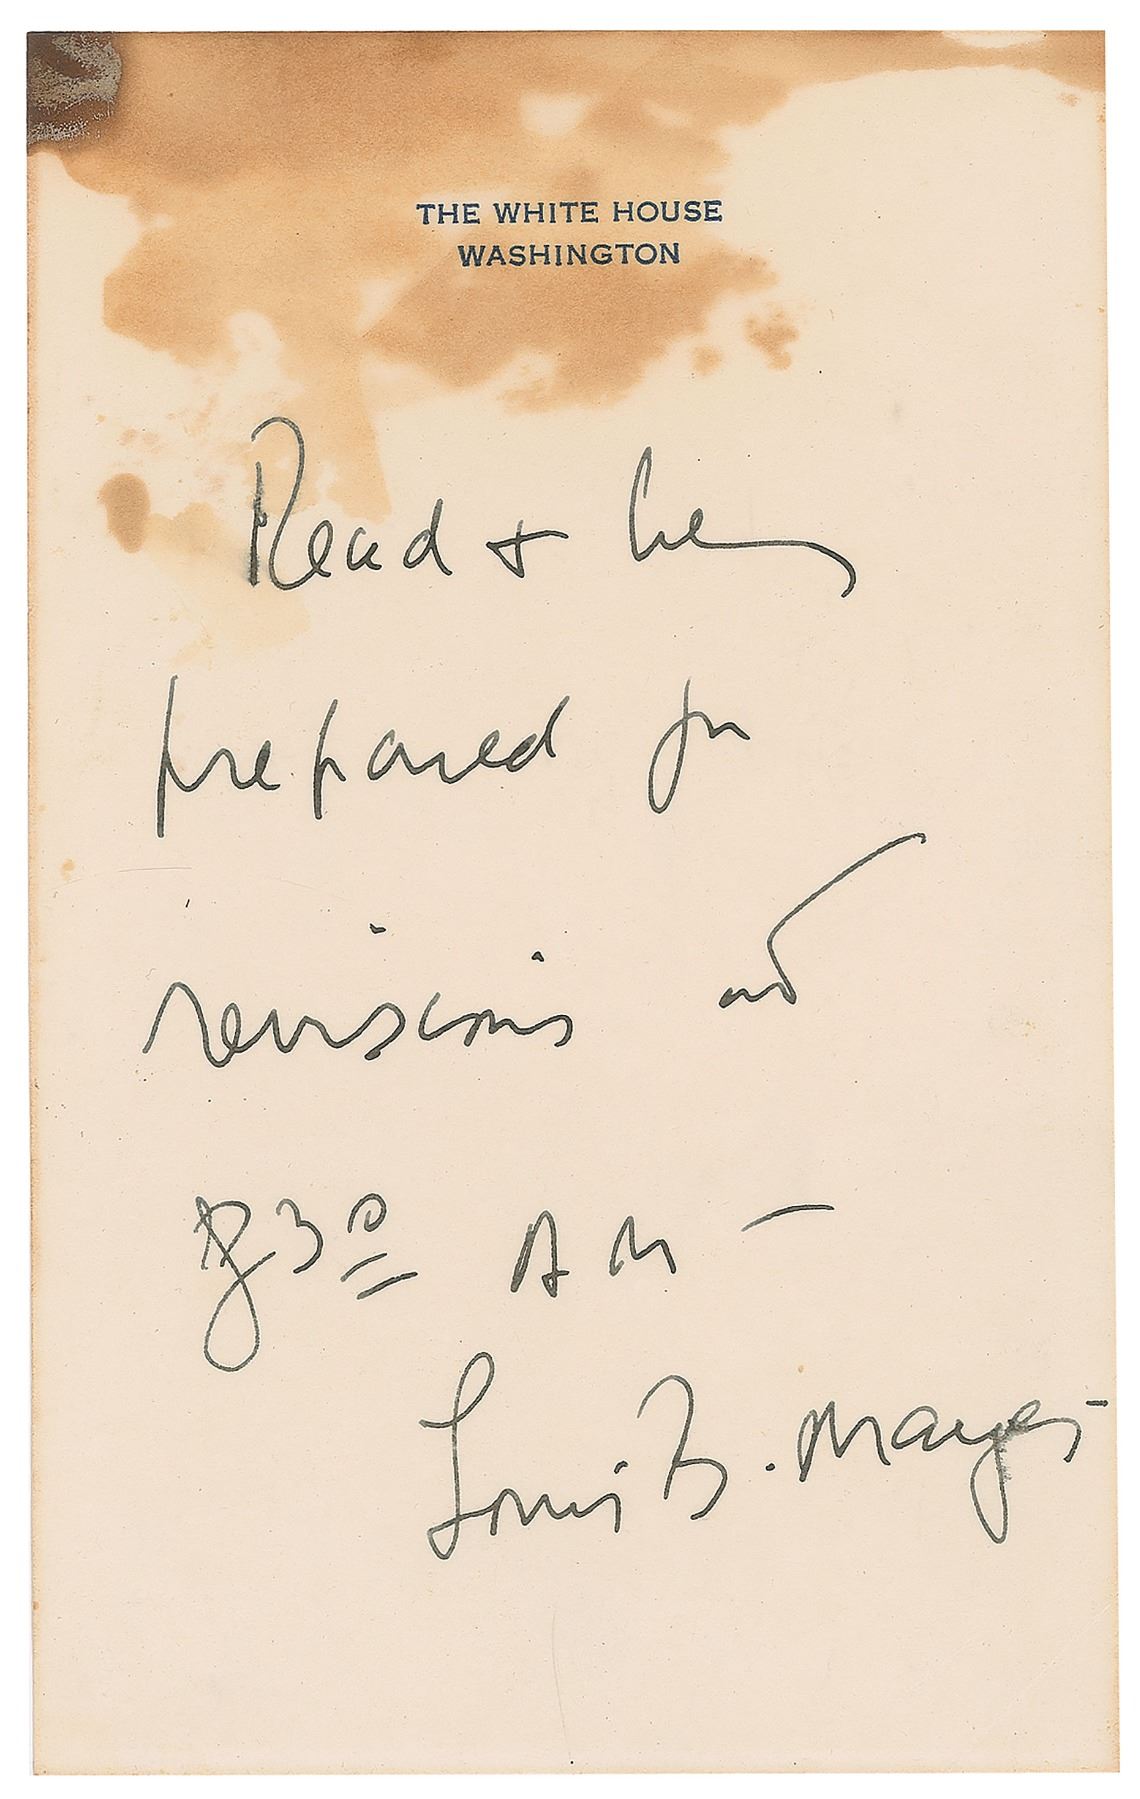 THE WHITE HOUSE
WASHINGTON
Read + be
prepared for
revisions at
8 30 AM —
Louis B. Mayer